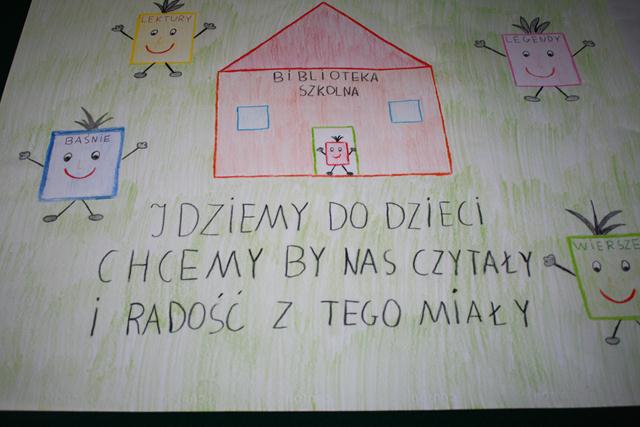 LEKTURY
LEGENDY
BIBLIOTEKA
SZKOLNA
BAŚNIE
IDZIEMY DO DZIECI
CHCEMY BY NAS CZYTAŁY
I RADOŚĆ Z TEGO MIAŁY
WIERSZE